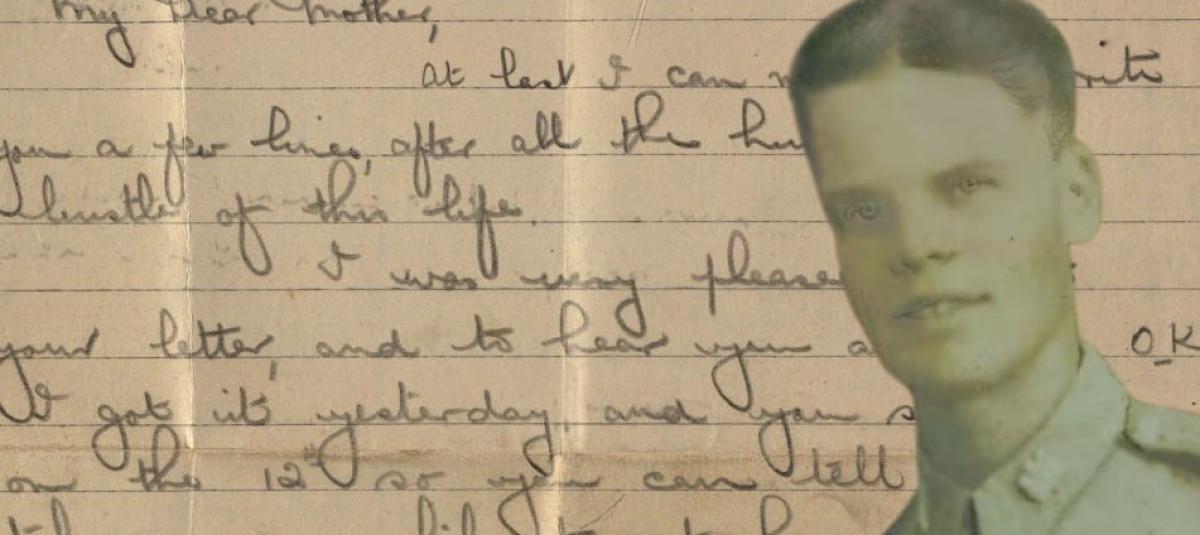 My Dear Mother,
at last I can write
you a few lines, after all the hu
bustle of this life.
I was very please
your letter, and to hear you a OK
I got it yesterday, and you s
on the 12th so you can tell